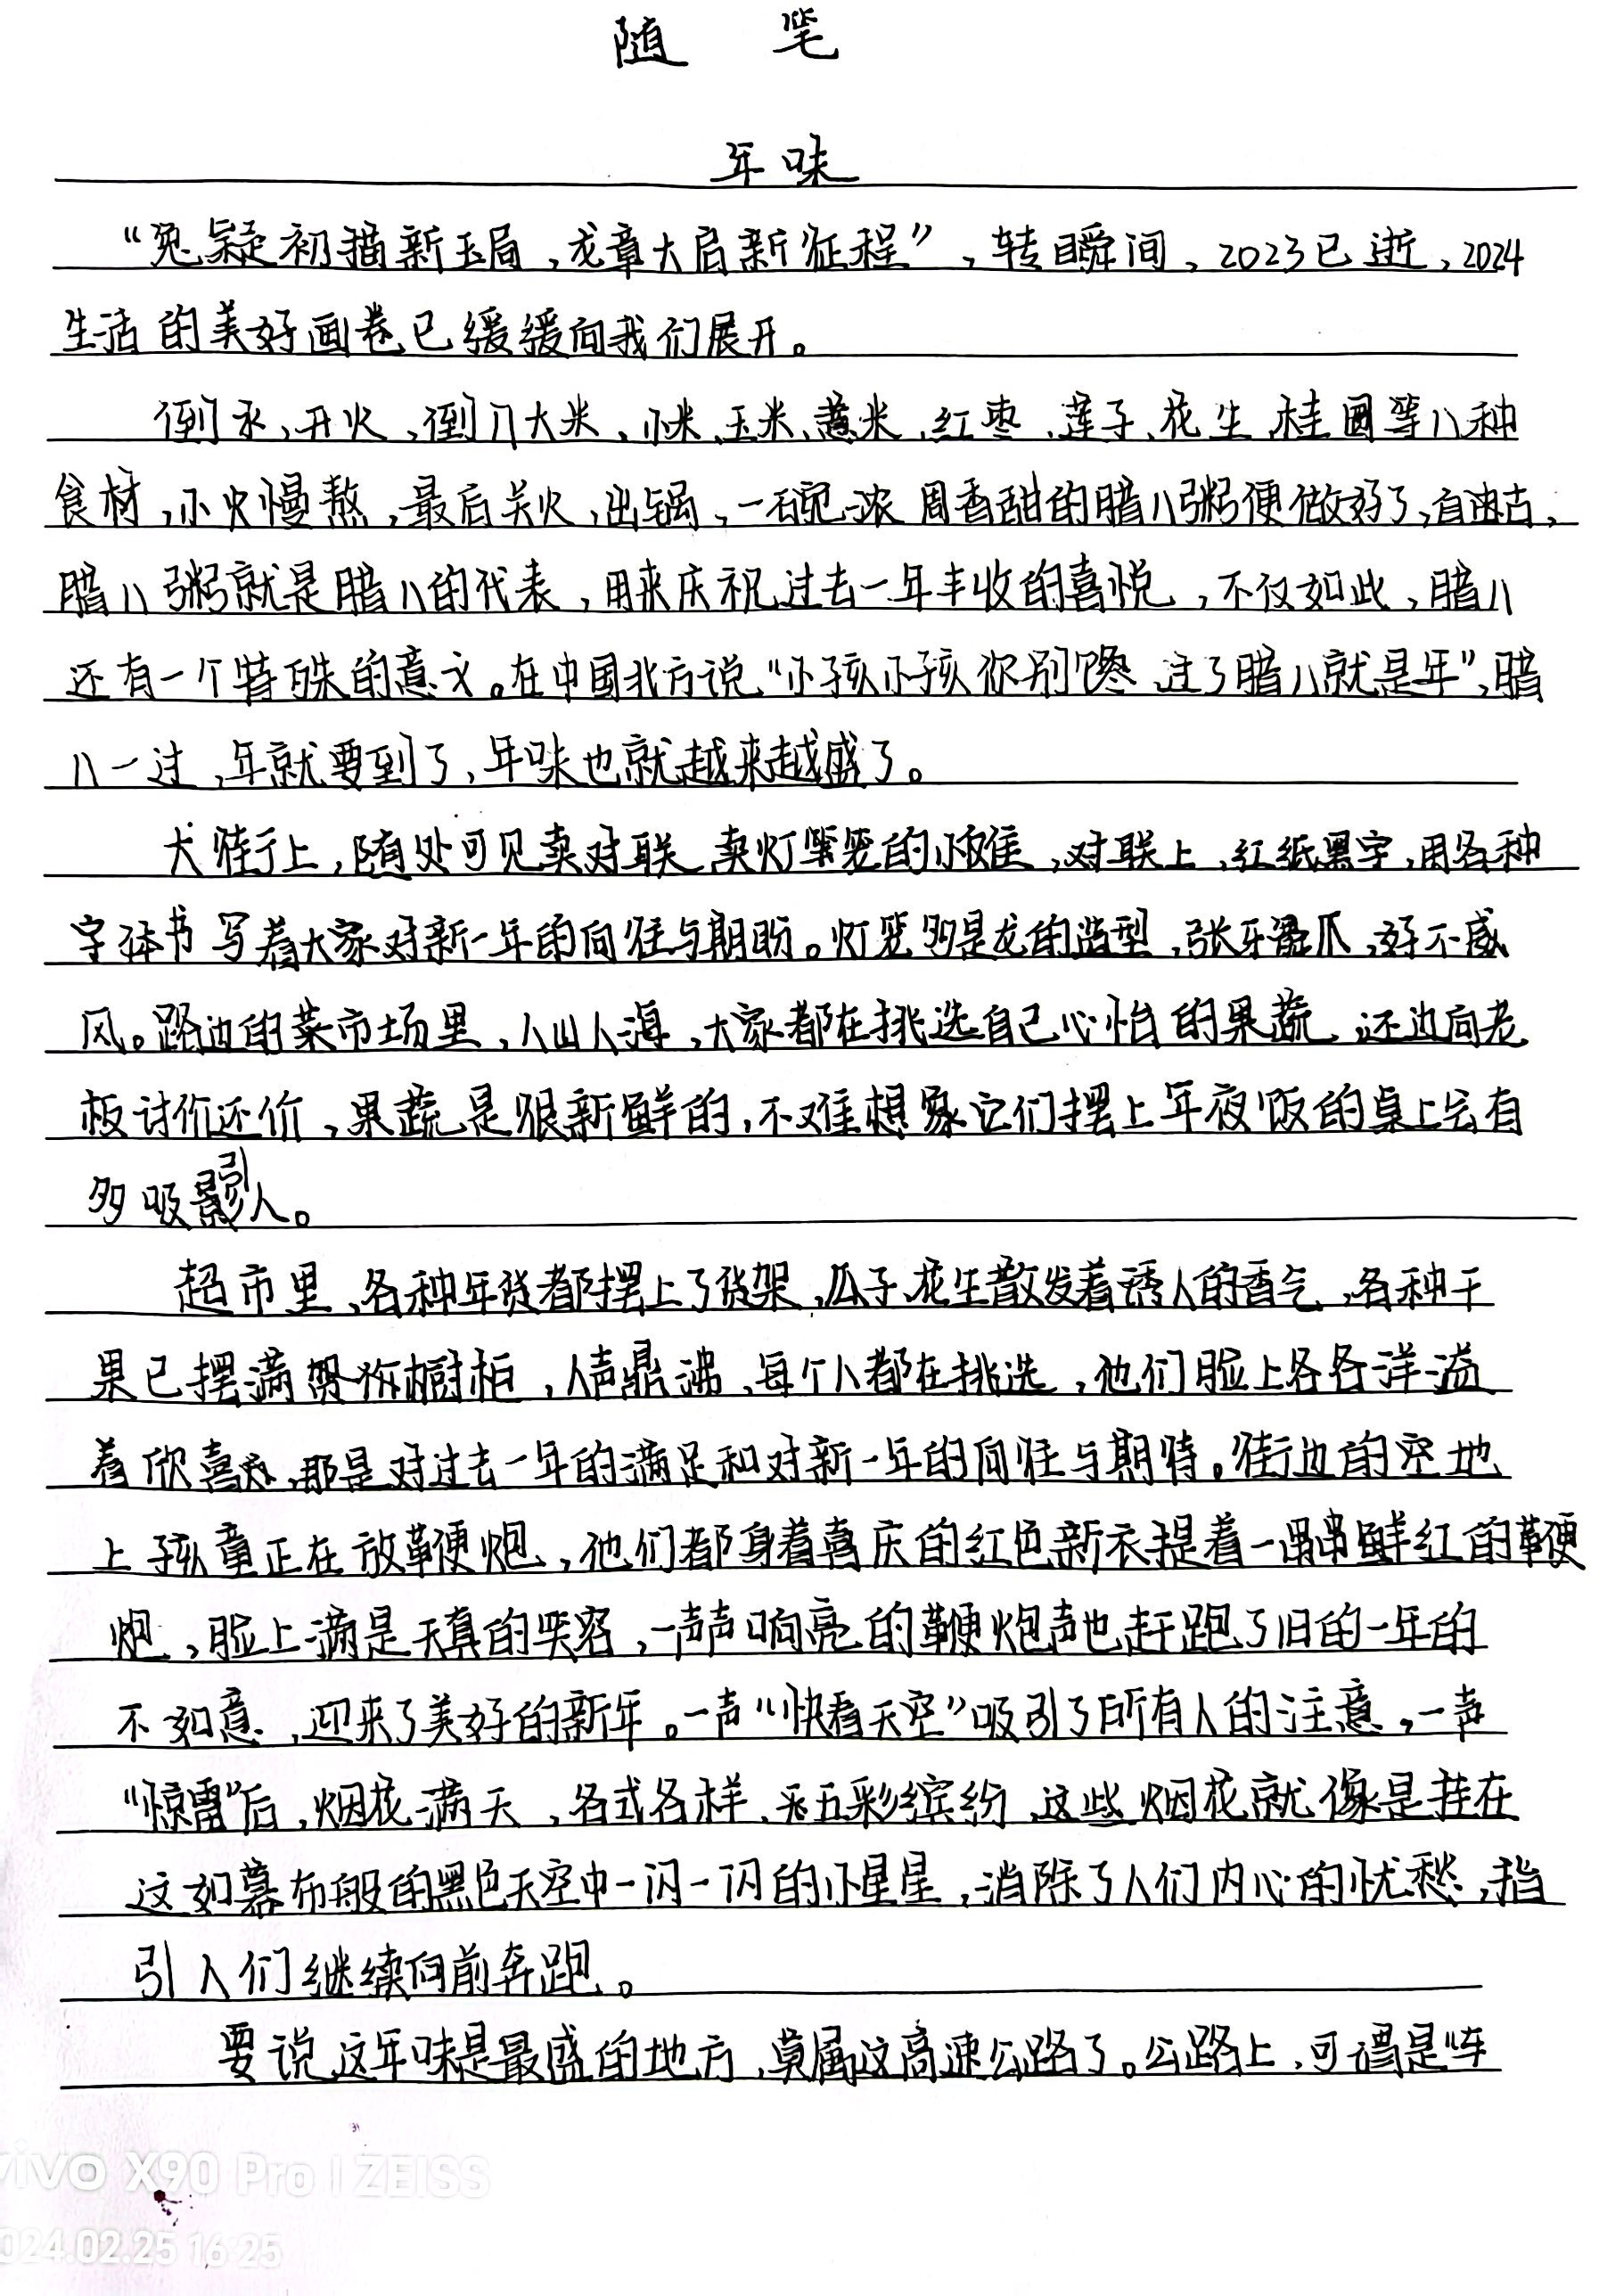 随 笔
年味
“兔疑初描新玉局，龙章大启新征程”，转目瞬间，2023已逝，2024
生活的美好画卷已缓缓向我们展开。
倒水、开火、倒入大米、小米、玉米、薏米、红枣、莲子、花生、桂圆等八种
食材，小火慢熬，最后关火、出锅，一碗浓周香甜的腊八粥便做好了，自古，
腊八粥就是腊八的代表，用来庆祝过去一年丰收的喜悦，不仅如此，腊八
还有一个特殊的意义。在中国北方说“小孩小孩你别馋 过了腊八就是年”，腊
八一过，年就要到了，年味也就越来越盛了。
大街上，随处可见卖对联、卖灯笼的小摊，对联上，红纸黑字，用各种
字体书写着大家对新一年的向往与期盼。灯笼多是龙的造型，张牙舞爪，好不威
风。路边的菜市场里，人山人海，大家都在挑选自己心怡的果蔬，还边向老
板讨价还价，果蔬是很新鲜的，不难想象它们摆上年夜饭的桌上会有
多吸引人。
超市里，各种年货都摆上了货架，瓜子、花生散发着诱人的香气，各种干
果已摆满橱柜，人声鼎沸，每个人都在挑选，他们脸上各各洋溢
着欣喜，那是对过去一年的满足和对新一年的向往与期待。街边的空地
上孩童正在放鞭炮，他们都身着喜庆的红色新衣提着一串串鲜红的鞭
炮，脸上满是天真的笑容，一声声响亮的鞭炮声也赶跑了旧的一年的
不如意，迎来了美好的新年。一声“快看天空”吸引了所有人的注意，一声
“惊雷”后，烟花满天，各式各样、五彩缤纷，这些烟花就像是挂在
这如幕布般的黑色天空中一闪一闪的小星星，消除了人们内心的忧愁，指
引人们继续向前奔跑。
要说这年味是最盛的地方，莫属这高速公路了。公路上，可谓是“车
vivo X90 Pro | ZEISS
2024.02.25 16:25